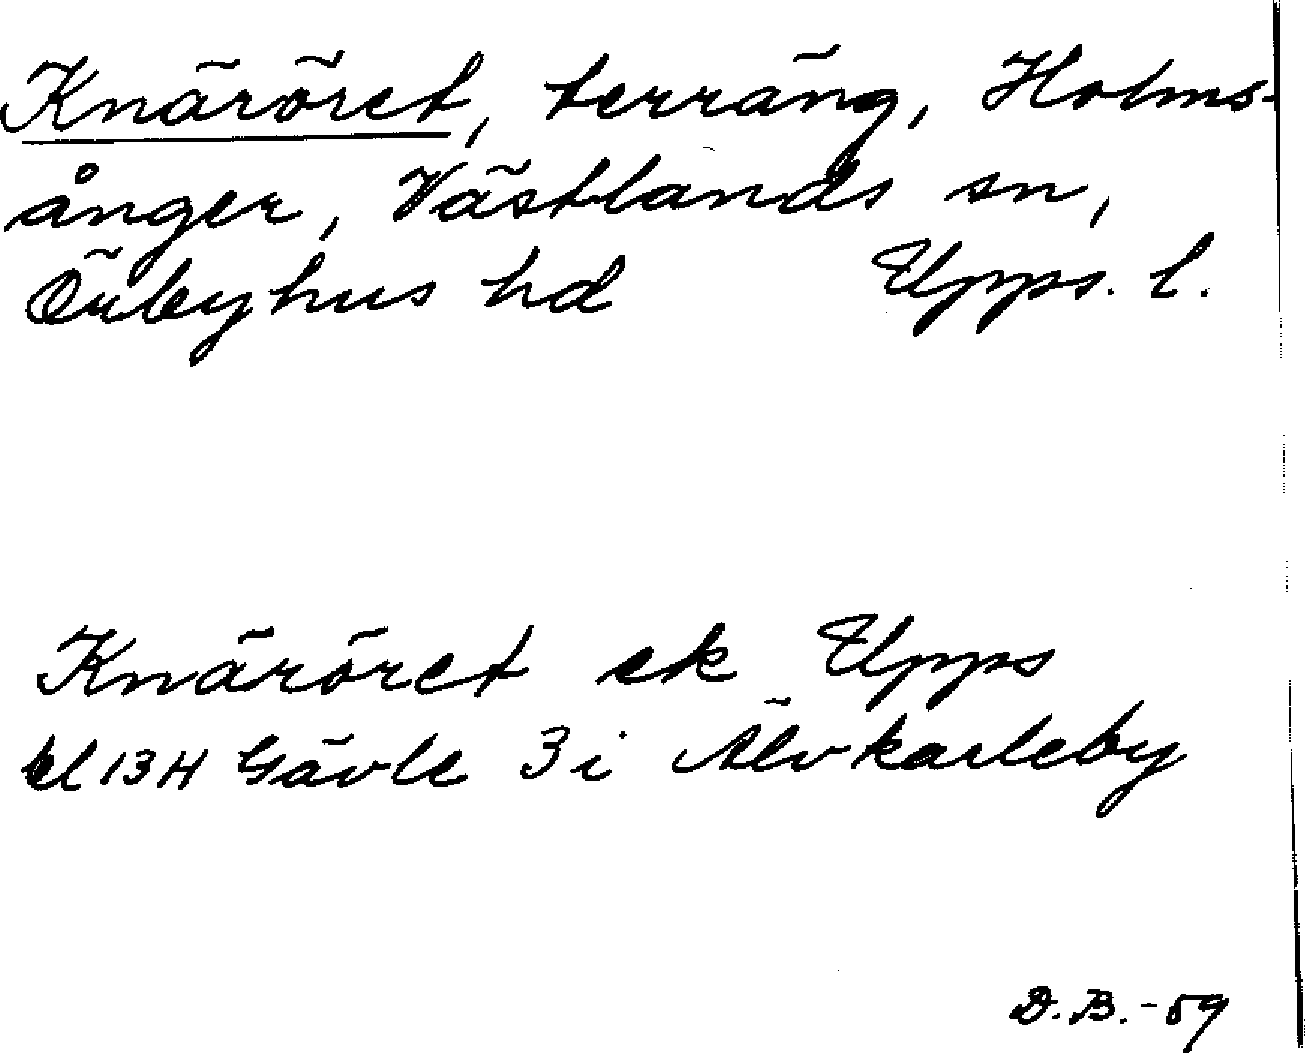 Knäröret, terräng, Holms-
ånger, Västlands sn,
Örbyhus hd Upps. l.
Knäröret ek Upps
bl 13 H Gävle 3 i Älvkarleby
D.B.-59